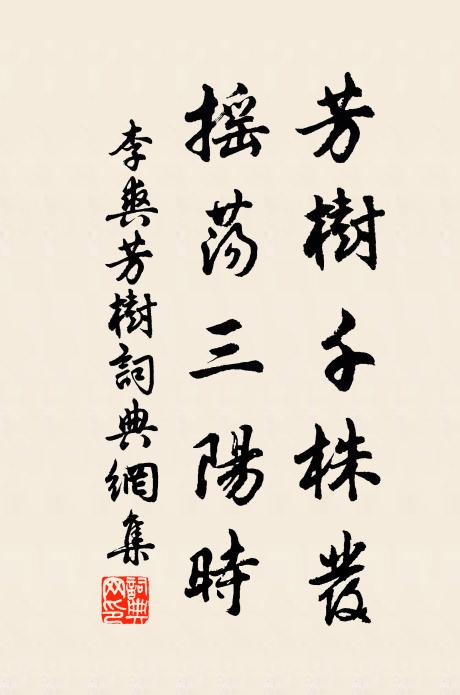 芳樹千株發
搖蕩三陽時
李爽芳樹詞典網集
詞典
网印